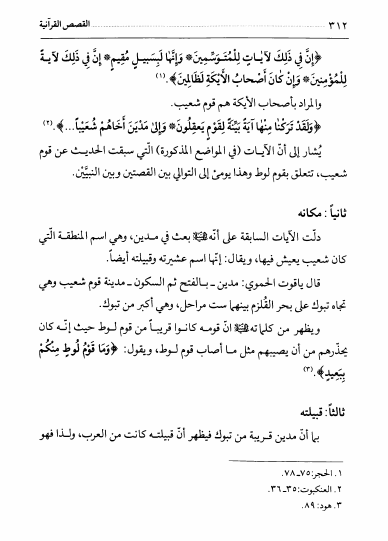 ٣١٢ ........ القصص القرآنية
﴿إنَّ في ذلِكَ لآياتٍ لِلْمُتَوسِّمينَ* وَإنَّها لَبِسَبيلٍ مُقيم* إنَّ في ذلِكَ لآيَةً
لِلْمُؤْمِنينَ* وَإن كانَ أَصْحابُ الأَيْكَةِ لَظالِمينَ﴾.(١)
والمراد بأصحاب الأيكة هم قوم شعيب.
﴿وَلَقَدْ تَرَكْنا مِنْها آيَةً بَيِّنَةً لِقَوْمٍ يَعقِلُونَ* وَإِلى مَدْيَنَ أَخَاهُمْ شُعَيْباً...﴾.(٢)
يُشار إلى أنّ الآيات (في المواضع المذكورة) الّتي سبقت الحديث عن قوم
شعيب، تتعلق بقوم لوط وهذا يومئ إلى التوالي بين القصتين وبين النبيَّيْن.
ثانياً : مكانه
دلّت الآيات السابقة على أنّه بعث في مدين، وهي اسم المنطقة الّتي
كان شعيب يعيش فيها، ويقال: إنّها اسم عشيرته وقبيلته أيضاً.
قال ياقوت الحموي: مدين ـ بالفتح ثم السكون ـ مدينة قوم شعيب وهي
تجاه تبوك على بحر القُلزم بينهما ست مراحل، وهي أكبر من تبوك.
ويظهر من كلماته انّ قومه كانوا قريباً من قوم لوط حيث إنّه كان
يحذّرهم من أن يصيبهم مثل ما أصاب قوم لوط، ويقول: ﴿وَمَا قَوْمُ لُوطٍ مِنْكُمْ
بِبَعِيدٍ﴾.(٣)
ثالثاً : قبيلته
بما أنّ مدين قريبة من تبوك فيظهر أنّ قبيلته كانت من العرب، ولذا فهو
١. الحجر:٧٥ـ٧٨.
٢. العنكبوت:٣٥ـ٣٦.
٣. هود:٨٩.